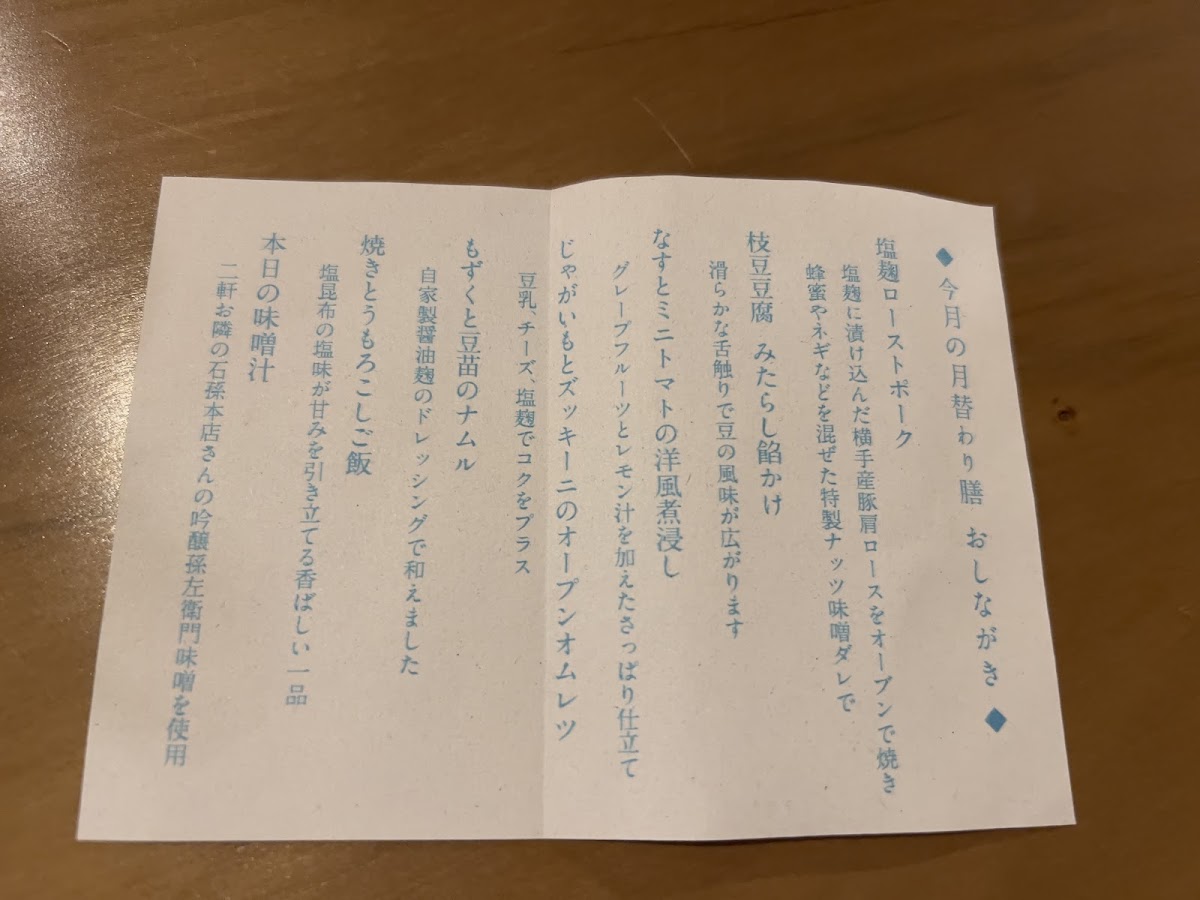 ◆今月の月替わり膳 おしながき◆
塩麹ローストポーク
塩麹に漬け込んだ横手産豚肩ロースをオーブンで焼き
蜂蜜やネギなどを混ぜた特製ナッツ味噌ダレで
枝豆豆腐 みたらし餡かけ
滑らかな舌触りで豆の風味が広がります
なすとミニトマトの洋風煮浸し
グレープフルーツとレモン汁を加えたさっぱり仕立て
じゃがいもとズッキーニのオープンオムレツ
豆乳、チーズ、塩麹でコクをプラス
もずくと豆苗のナムル
自家製醤油麹のドレッシングで和えました
焼きとうもろこしご飯
塩昆布の塩味が甘みを引き立てる香ばしい一品
本日の味噌汁
二軒お隣の石孫本店さんの吟醸孫左衛門味噌を使用